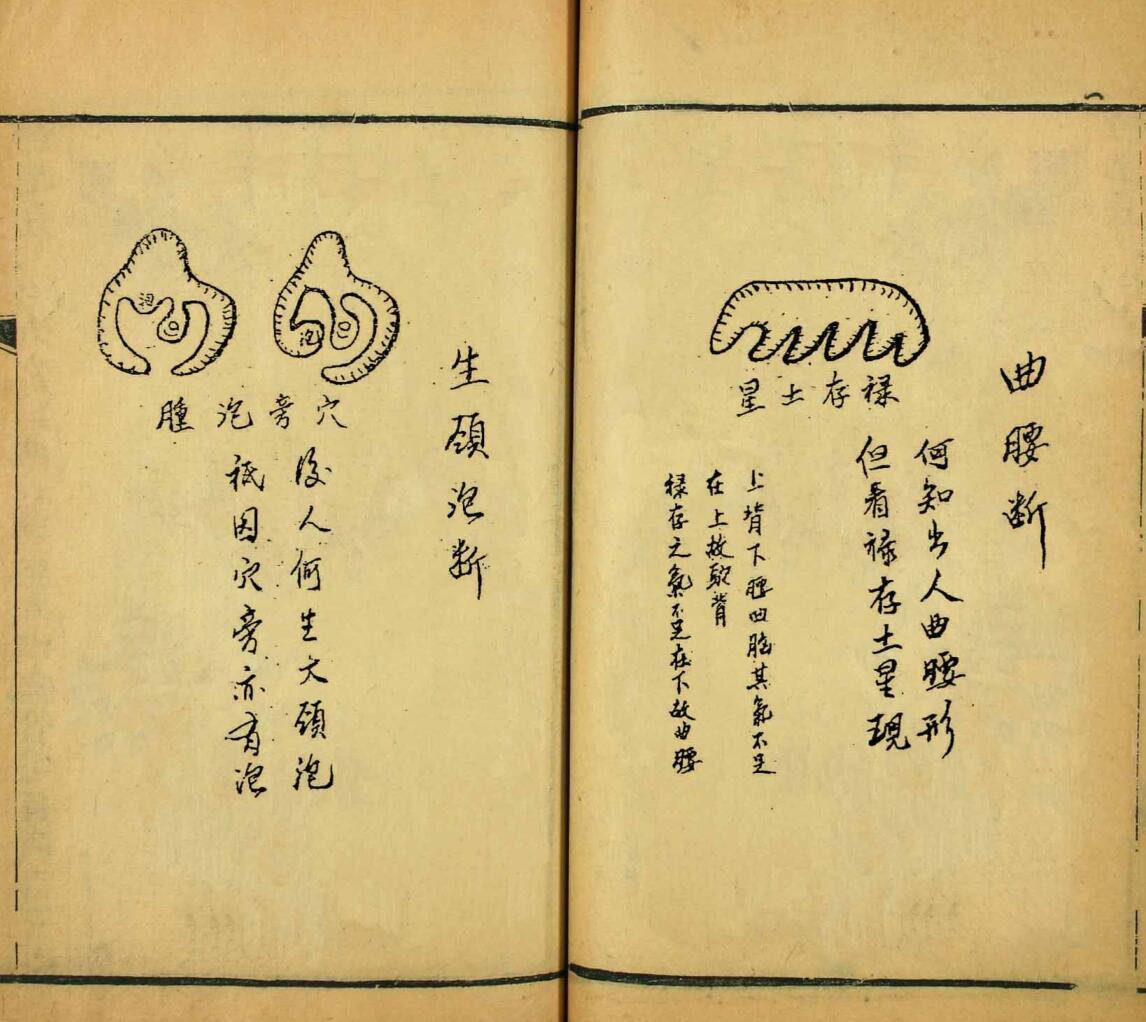 曲腰断
禄存土星
何知出人曲腰形
但看禄存土星現
上背下腰曲其氣不足
在上故駝背
禄存之氣不足在下故曲腰
生頸泡断
泡
泡
穴旁泡腫
後人何生大頸泡
祇因穴旁亦有泡